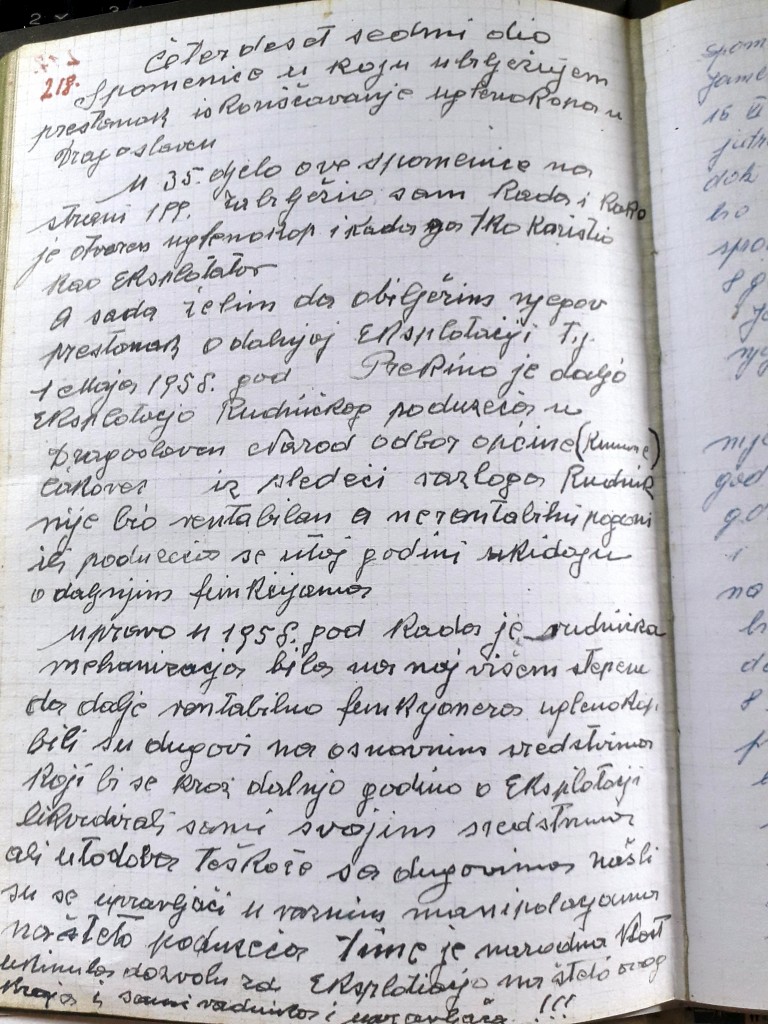 218.
Četerdeset sedmi dio
Spomenice u koju ubilježujem
prestanak iskorišćavanje uglenokopa u
Dragoslavcu
U 35. djelo ove spomenice na
strani 199. zabilježio sam kada i kako
je otvoren uglenokop i kada ga tko koristio
kao Eksploatator
A sada želim da obilježim njegov
prestanak o daljnjoj Eksplotaciji t.j.
1 Maja 1958. god Prekino je daljo
Eksplotacijo Rudničkog poduzeća u
Dragoslavcu Narod odbor općine (Komune)
Čakovec iz sledeći razloga Rudnik
nije bio rentabilan a nerentabilni pogoni
ili poduzeća se utoj godini ukidaju
o daljnjim funkcijama
Upravo u 1958. god kada je rudnička
mehanizacija bila na naj višem stepenu
da dalje rentabilno funkcionera uglenokop.
bili su dugovi na osnovnim sredstvima
koji bi se kroz dalnjo godino o Eksplotaciji
likvidirali sami svojim sredstvima
ali utodoba teškoće sa dugovima našli
su se upravljači u raznim manipolacijama
na šteto poduzeća time je narodna vlast
ukinula dozvolu za Eksplotacijo na šteto ovog
kraja i sami radnika i upravljača !!!
spom
jame
16
jutr
dok
bio
spo
8 g
nje
god
na
br
do
8
p